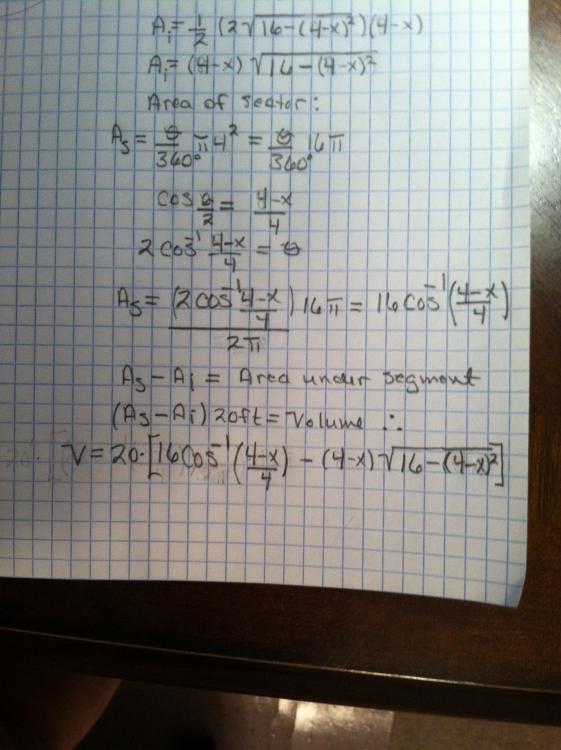 A₁ = 1/2 (2√(16-(4-x)²))(4-x)
A₁ = (4-x) √(16-(4-x)²)
Area of sector:
As = θ/360° π4² = θ/360° 16π
cos θ/2 = (4-x)/4
2 cos⁻¹ (4-x)/4 = θ
As = (2cos⁻¹ (4-x)/4)/2π 16π = 16 cos⁻¹((4-x)/4)
As - A₁ = Area under segment
(As - A₁) 20ft = Volume ∴
V = 20·[16cos⁻¹((4-x)/4) - (4-x)√(16-(4-x)²)]